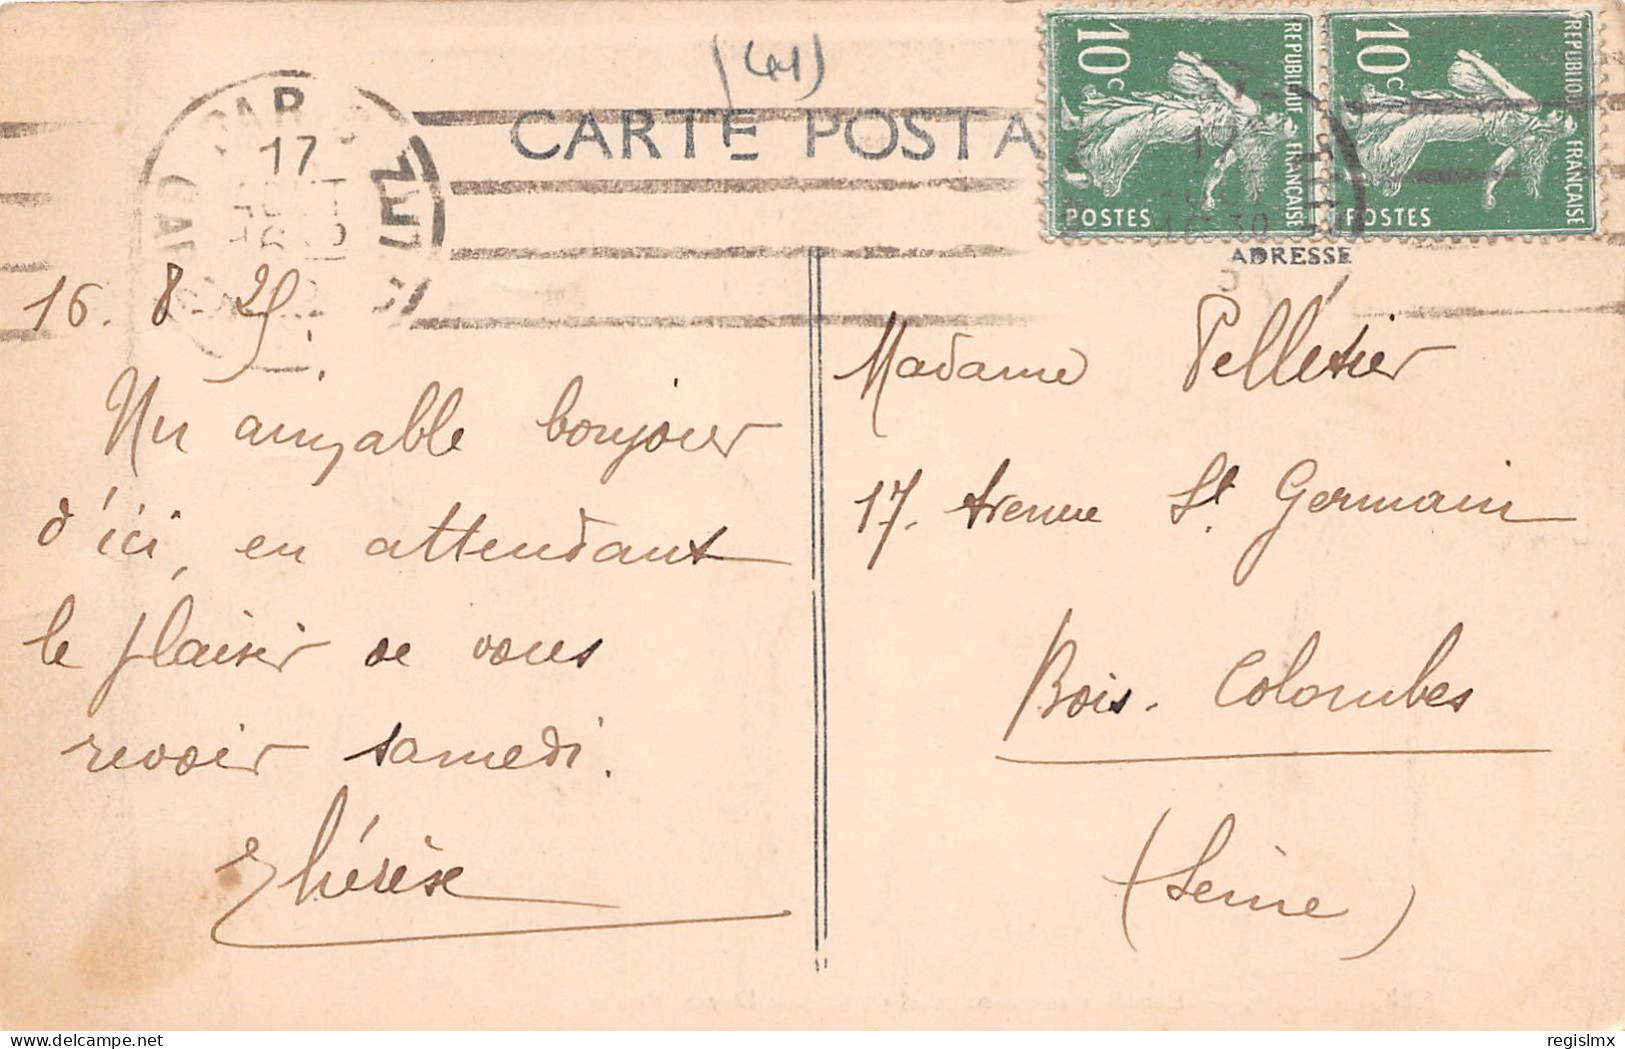 (41)
CARTE POSTA
10c
REPUBLIQUE FRANÇAISE
POSTES
10c
REPUBLIQUE FRANÇAISE
POSTES
17
ADRESSE
16. 8. 25.
Un aimable bonjour
d'ici, en attendant
le plaisir de vous
revoir samedi.
Thérèse
Madame Pelletier
17. Avenue St. Germain
Bois-Colombes
(Seine)
regislmx